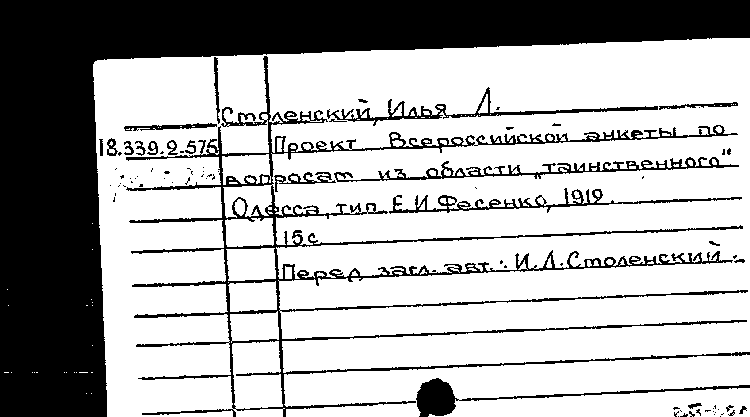 Столенский, Илья Л.
18.339.2.575 Проект Всероссийской анкеты по
вопросам из области „таинственного"
Одесса, тип. Е.И.Фесенко, 1912.
15с.
Перед загл. авт.: И.Л.Столенский.